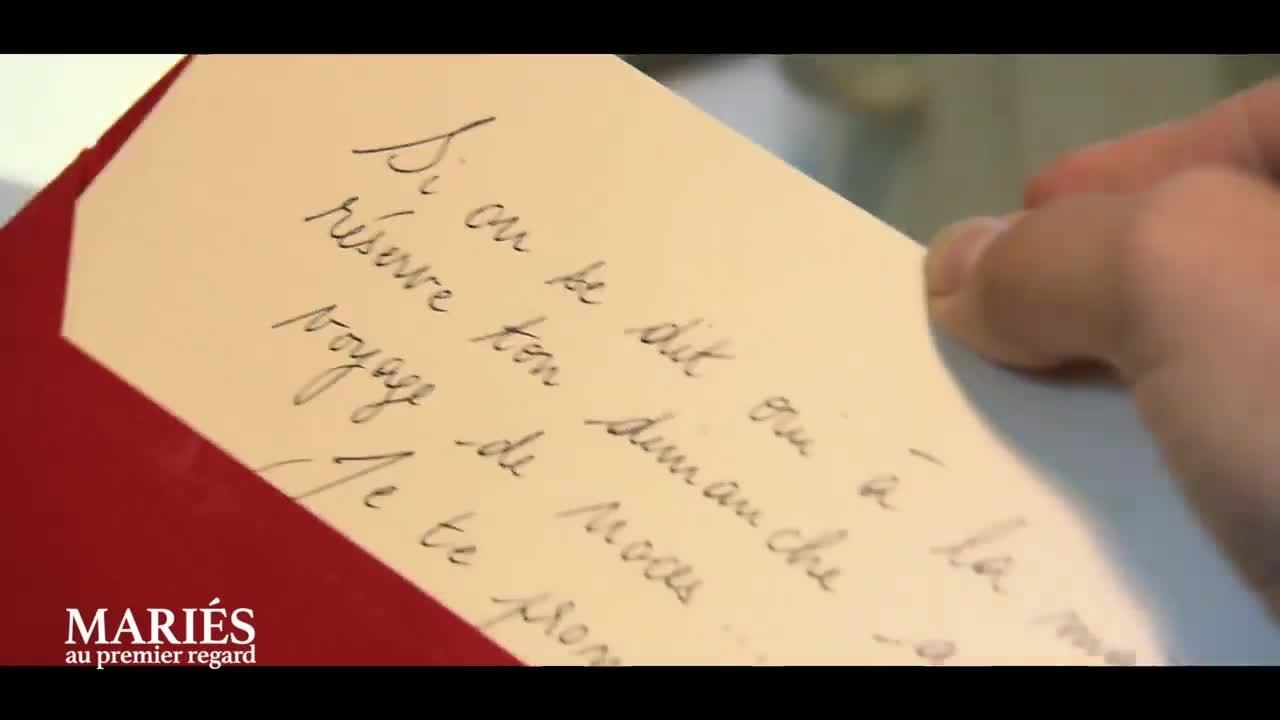 Si on se dit oui à la
réserve ton dimanche
voyage de noces ...
Je te
MARIÉS
au premier regard